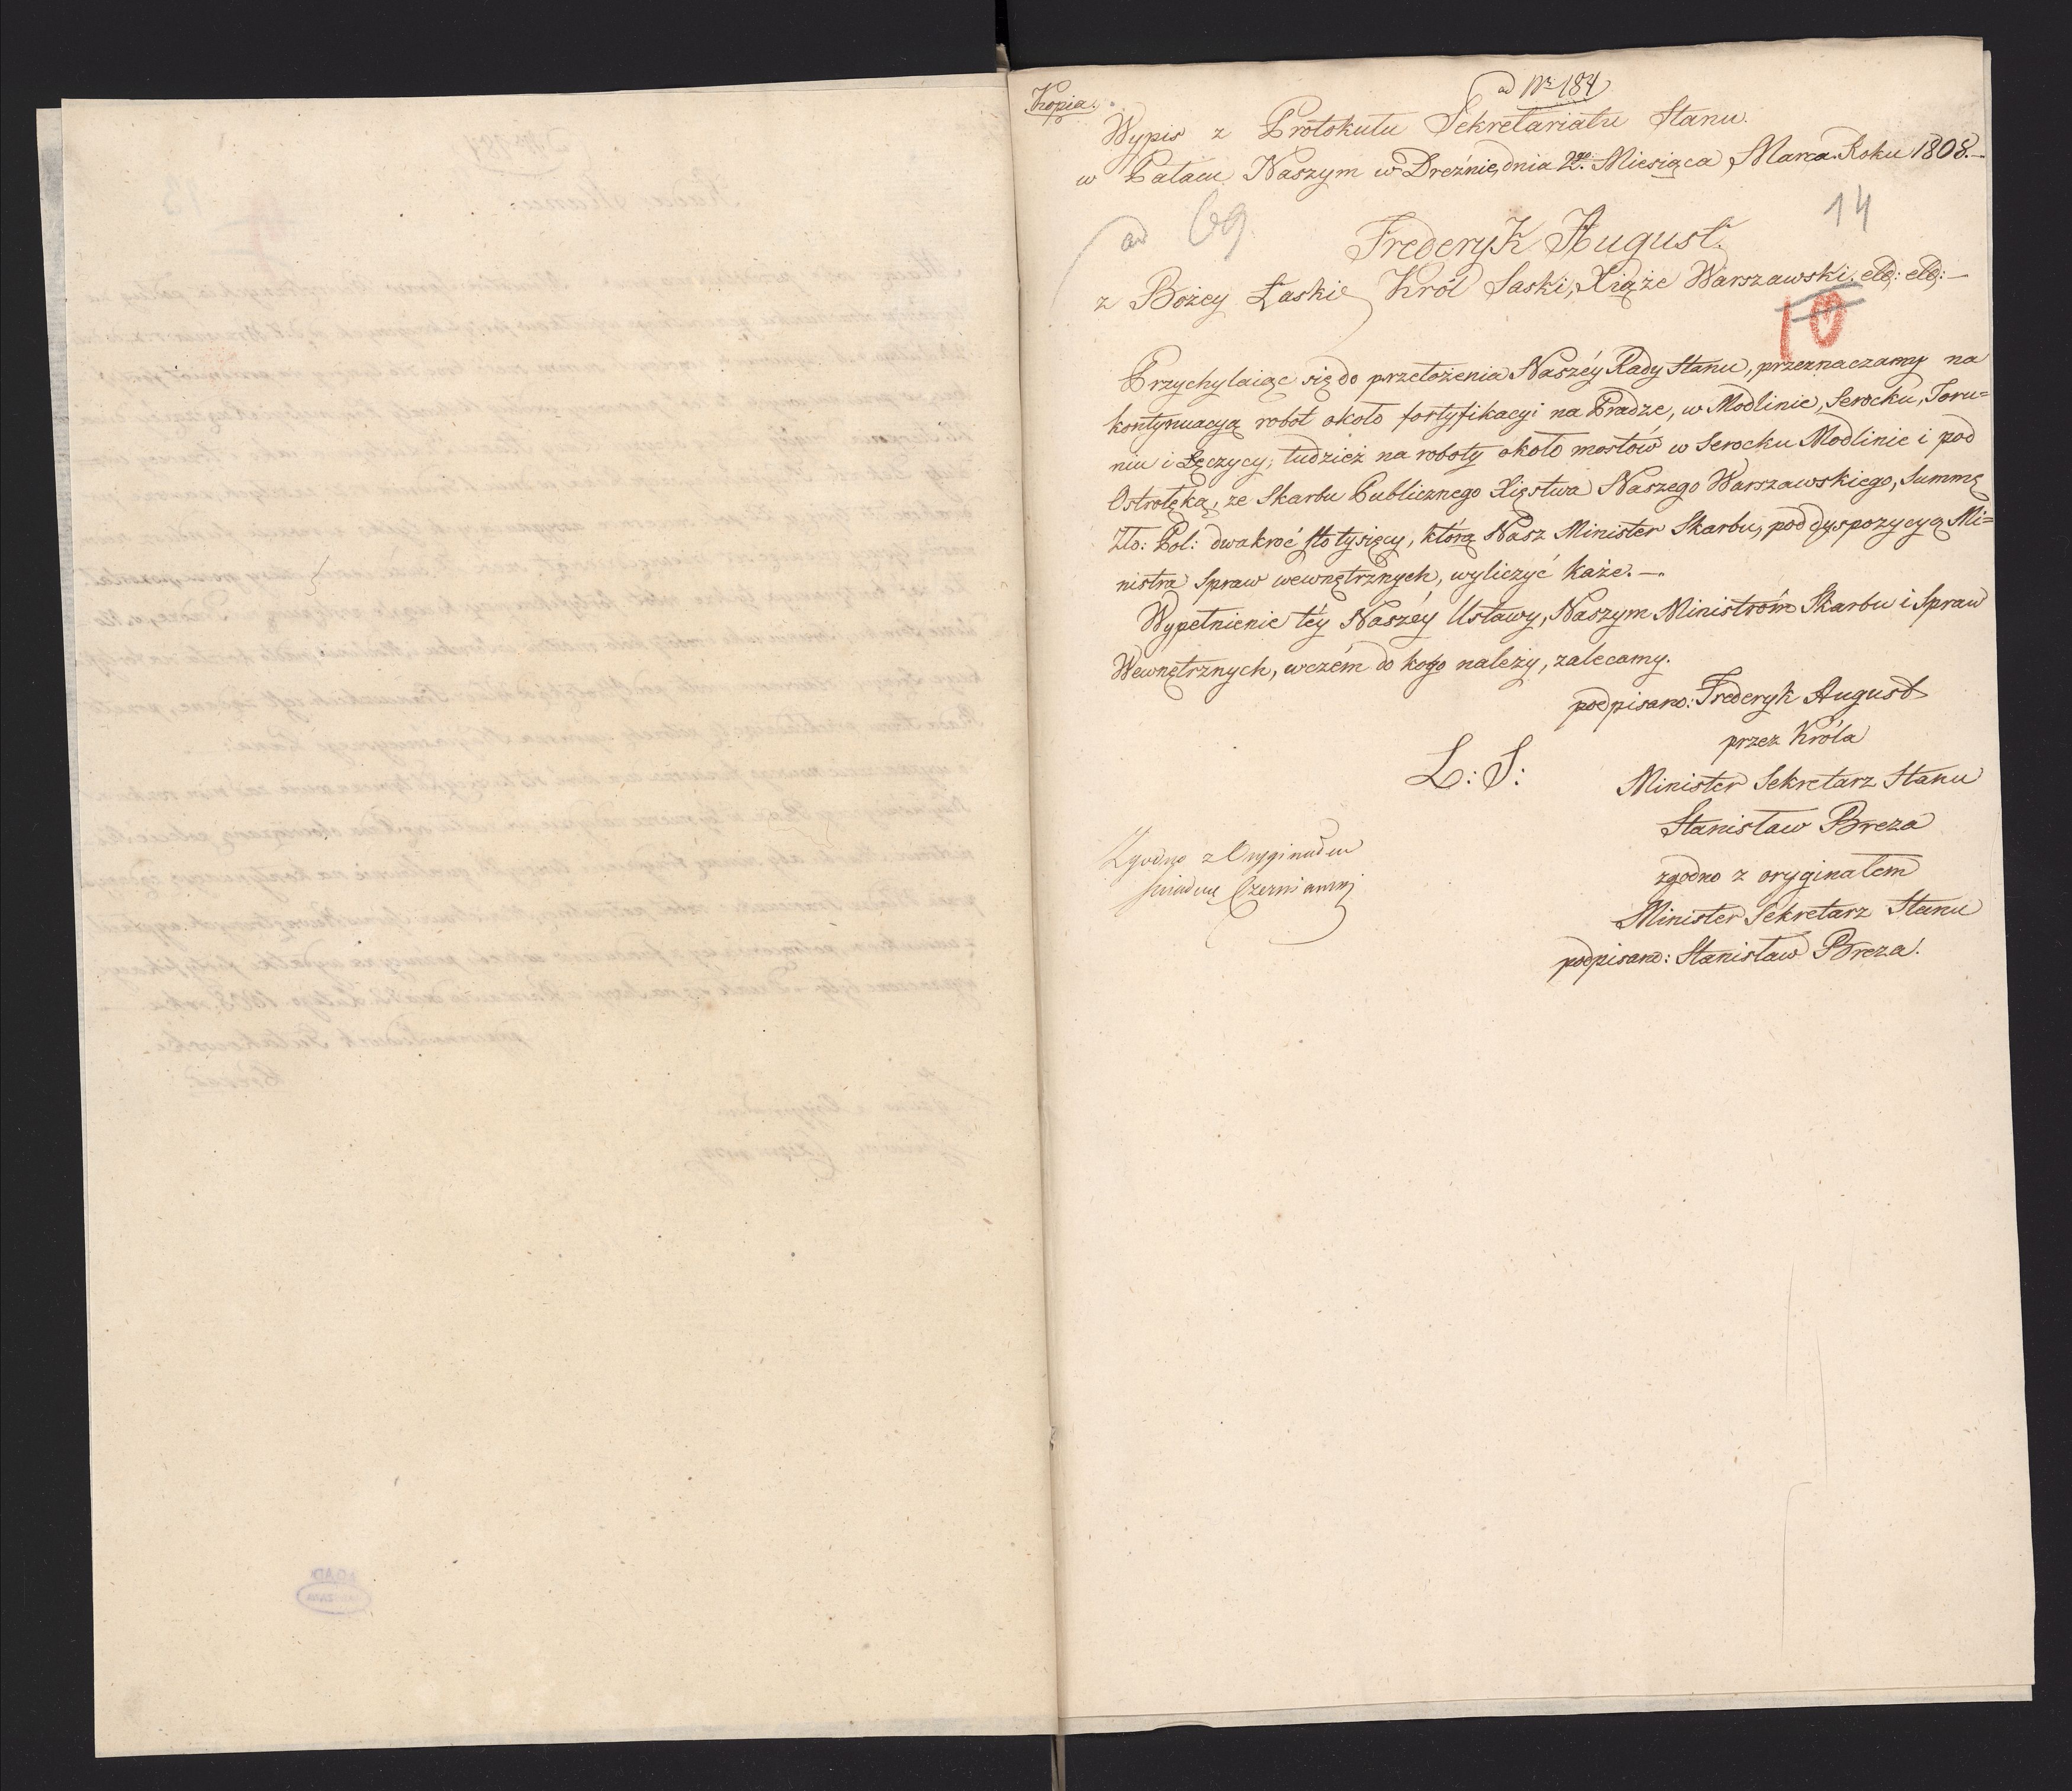 Kopia.
ad Nr 184
Wypis z Protokułu Sekretariatu Stanu.
w Pałacu Naszym w Dreźnie, dnia 2go Miesiąca Marca Roku 1808.—
ad 69
14
Frederyk August.
z Bożey Łaski Król Saski, Xiąże Warszawski, etc: etc:—
10
Przychylaiąc się do przełożenia Naszéy Rady Stanu, przeznaczamy na
kontynuacyą robot około fortyfikacyi na Pradze, w Modlinie, Serocku, Toru=
niu i Łęczycy, tudzież na roboty około mostów w Serocku Modlinie i pod
Ostrołęką, ze Skarbu Publicznego Xięstwa Naszego Warszawskiego, Summę
Zło: Pol: dwakroć sto tysięcy, którą Nasz Minister Skarbu, pod dyspozycyą Mi=
nistra Spraw wewnętrznych, wyliczyć każe.—
Wypełnienie téy Naszéy Ustawy, Naszym Ministróm Skarbu i Spraw
Wewnętrznych, wczém do kogo należy, zalecamy.
podpisano: Frederyk August
przez Króla
L: S:
Minister Sekretarz Stanu
Stanisław Breza
Zgodno z Oryginałem
zgodno z oryginałem
Minister Sekretarz Stanu
podpisano: Stanisław Breza.